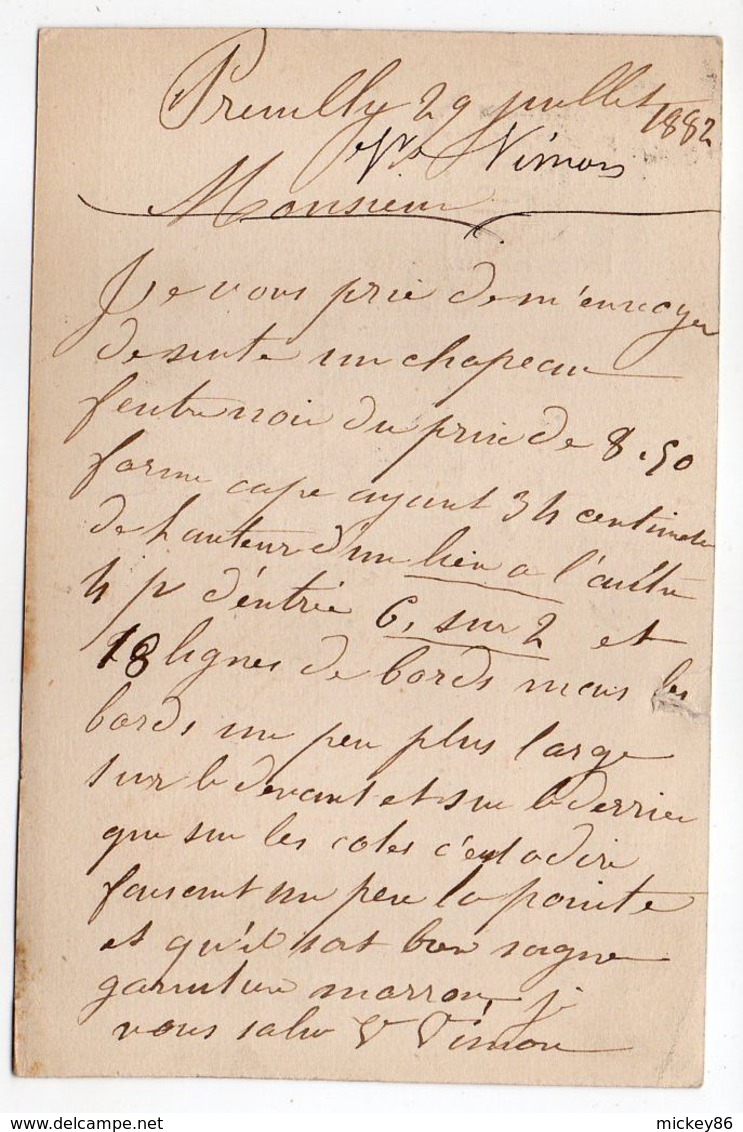 Preuilly 29 juillet 1882
Vve Vimon
Monsieur
Je vous prie de m'envoyer
de suite un chapeau
feutre noir du prix de 8.50
forme cape ayant 34 centimetre
de hauteur d'un lien a l'autre
4 p d'éntrée 6, sur 2 et
18 lignes de bords mais les
bords un peu plus large
sur le devant et sur le derrier
que sur les cotes c'est a dire
faisant un peu la pointe
et qu'il soit bien soigne
garniture marron, je
vous salue V Vimon
mickey86